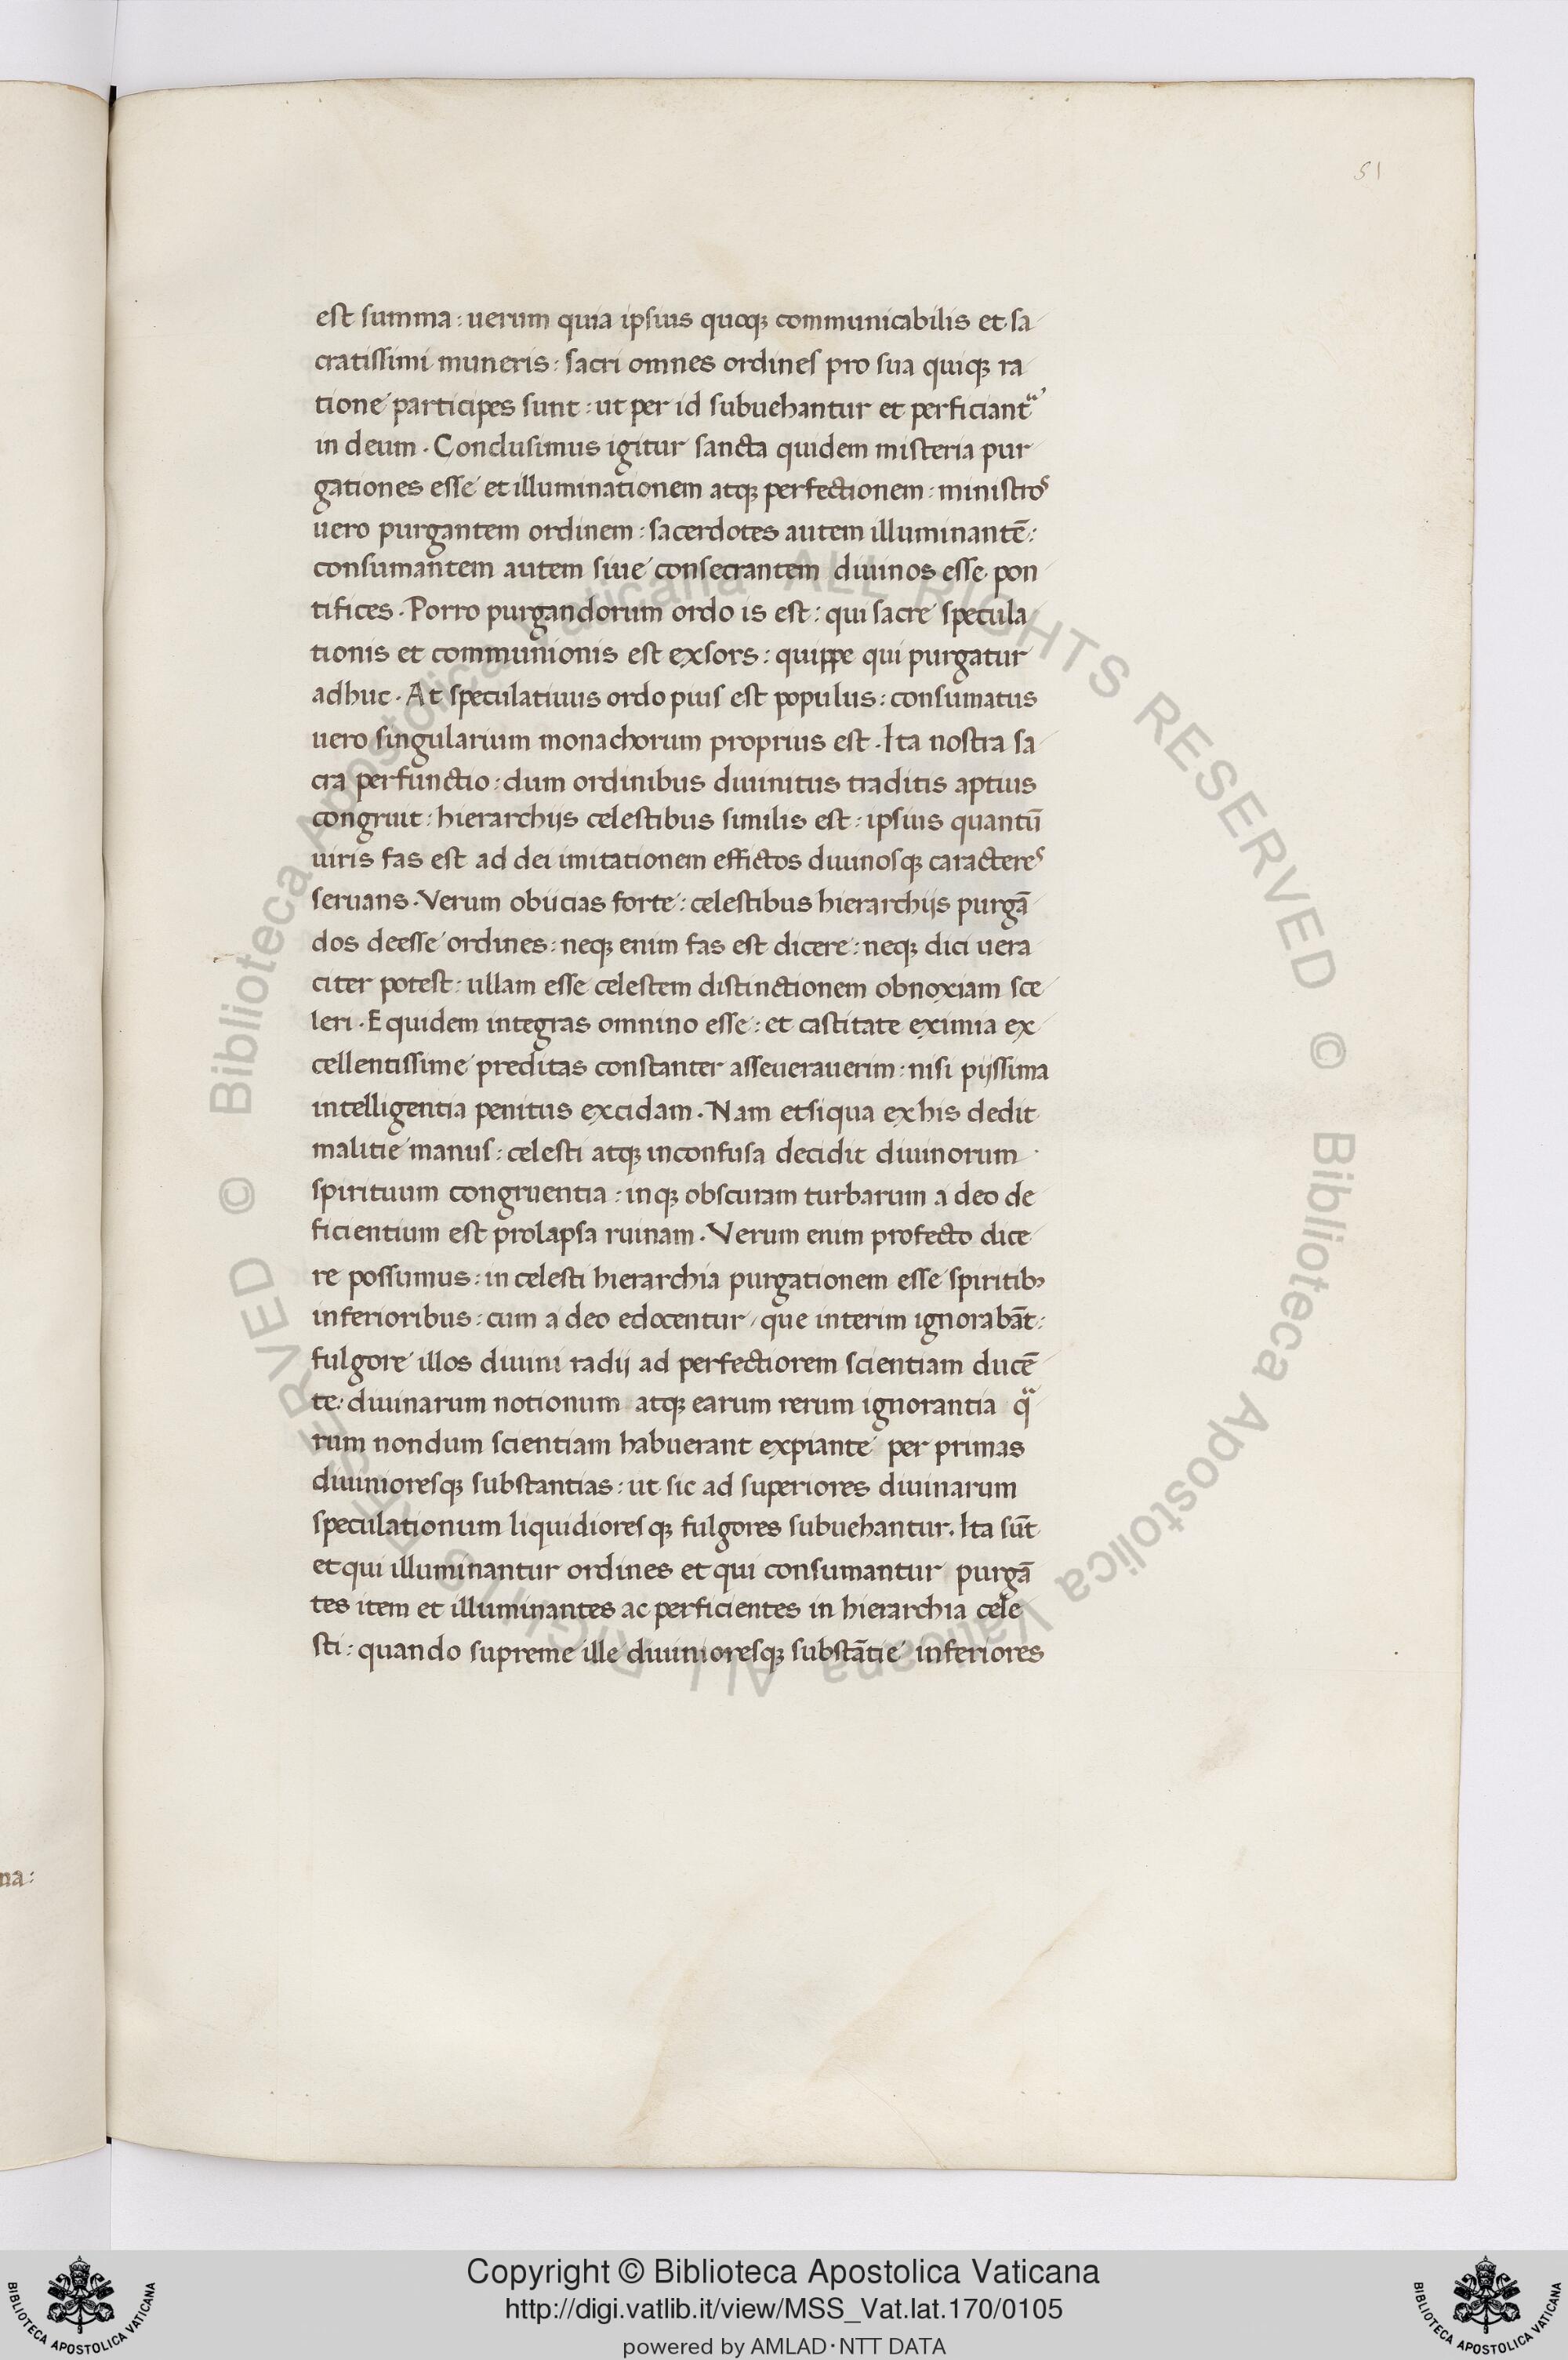 51
est summa : uerum quia ipsius quoqȝ communicabilis et sa
cratissimi muneris : sacri omnes ordines pro sua quiqȝ ra
tione participes sunt : ut per id subuehantur et perficiantᵃʼ
in deum . Conclusimus igitur sancta quidem misteria pur
gationes esse et illuminationem atqȝ perfectionem : ministros
uero purgantem ordinem : sacerdotes autem illuminantē :
consumantem autem siue consecrantem diuinos esse pon
tifices . Porro purgandorum ordo is est : qui sacre specula
tionis et communionis est exsors : quippe qui purgatur
adhuc . At speculatiuus ordo pius est populus : consumatus
uero singularium monachorum proprius est . Ita nostra sa
cra perfunctio : dum ordinibus diuinitus traditis aptius
congruit : hierarchijs celestibus similis est : ipsius quantū
uiris fas est ad dei imitationem effictos diuinosqȝ caracteres
seruans . Verum obiicias forte : celestibus hierarchijs purgā
dos deesse ordines : neqȝ enim fas est dicere : neqȝ dici uera
citer potest : ullam esse celestem distinctionem obnoxiam sce
leri . Equidem integras omnino esse : et castitate eximia ex
cellentissime preditas constanter asseuerauerim : nisi pijssima
intelligentia penitus excidam . Nam etsi qua ex his dedit
malitie manus : celesti atqȝ inconfusa decidit diuinorum
spirituum congruentia : inqȝ obscuram turbarum a deo de
ficientium est prolapsa ruinam . Verum enim profecto dice
re possumus : in celesti hierarchia purgationem esse spiritibꝫ
inferioribus : cum a deo edocentur / que interim ignorabāt :
fulgore illos diuini radij ad perfectiorem scientiam ducē
te . diuinarum notionum atqȝ earum rerum ignorantia qᵃ
rum nondum scientiam habuerant expiante per primas
diuinioresqȝ substantias : ut sic ad superiores diuinarum
speculationum liquidioresqȝ fulgores subuehantur . Ita sūt
et qui illuminantur ordines et qui consumantur purgā
tes item et illuminantes ac perficientes in hierarchia cele
sti : quando supreme ille diuinioresqȝ substātie inferiores
na :
© Biblioteca Apostolica Vaticana ALL RIGHTS RESERVED © Biblioteca Apostolica Vaticana ALL RIGHTS RESERVED
Copyright © Biblioteca Apostolica Vaticana
http://digi.vatlib.it/view/MSS_Vat.lat.170/0105
powered by AMLAD·NTT DATA
BIBLIOTECA APOSTOLICA VATICANA
BIBLIOTECA APOSTOLICA VATICANA